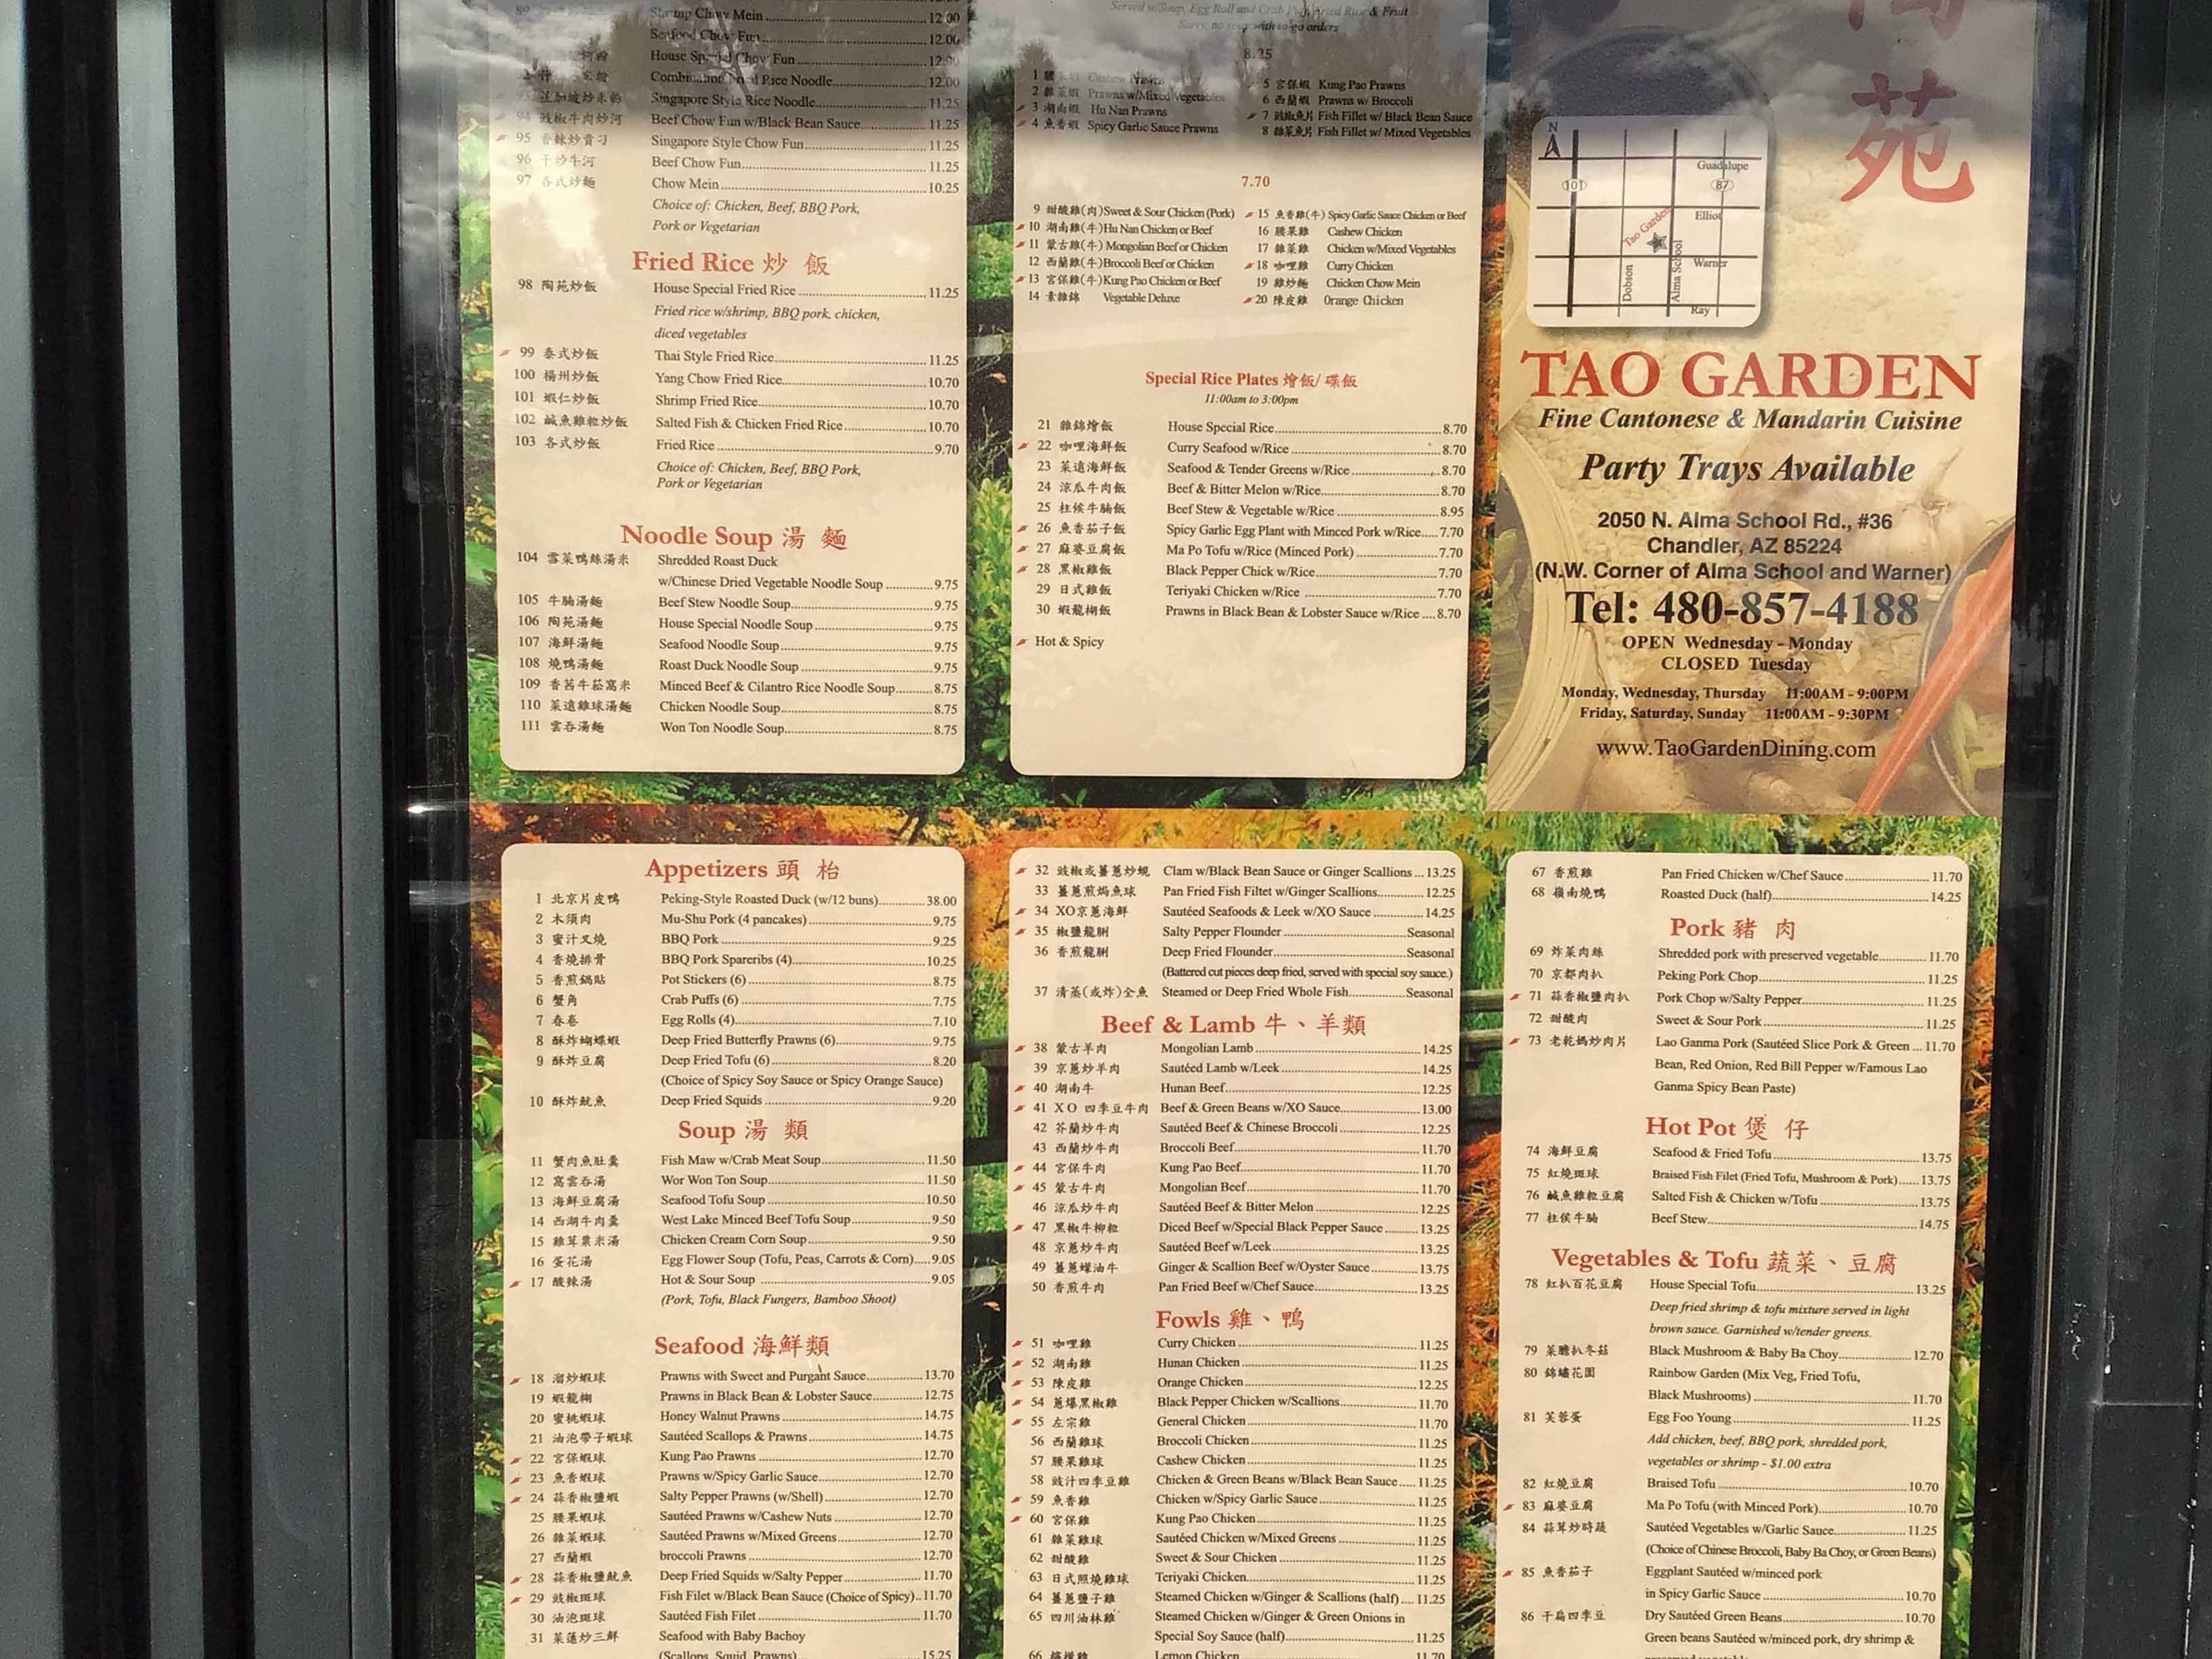 Shrimp Chow Mein 12.00
Seafood Chow Fun 12.00
House Special Chow Fun 12.00
Combination Fried Rice Noodle 12.00
Singapore Style Rice Noodle 11.25
94 豉椒牛肉炒河 Beef Chow Fun w/Black Bean Sauce 11.25
95 香辣炒貴刁 Singapore Style Chow Fun 11.25
96 干炒牛河 Beef Chow Fun 11.25
97 各式炒麵 Chow Mein 10.25
Choice of: Chicken, Beef, BBQ Pork,
Pork or Vegetarian
Fried Rice 炒 飯
98 陶苑炒飯 House Special Fried Rice 11.25
Fried rice w/shrimp, BBQ pork, chicken,
diced vegetables
99 泰式炒飯 Thai Style Fried Rice 11.25
100 楊州炒飯 Yang Chow Fried Rice 10.70
101 蝦仁炒飯 Shrimp Fried Rice 10.70
102 鹹魚雞粒炒飯 Salted Fish & Chicken Fried Rice 10.70
103 各式炒飯 Fried Rice 9.70
Choice of: Chicken, Beef, BBQ Pork,
Pork or Vegetarian
Noodle Soup 湯 麵
104 雪菜鴨絲湯米 Shredded Roast Duck
w/Chinese Dried Vegetable Noodle Soup 9.75
105 牛腩湯麵 Beef Stew Noodle Soup 9.75
106 陶苑湯麵 House Special Noodle Soup 9.75
107 海鮮湯麵 Seafood Noodle Soup 9.75
108 燒鴨湯麵 Roast Duck Noodle Soup 9.75
109 香茜牛菘窩米 Minced Beef & Cilantro Rice Noodle Soup 8.75
110 菜遠雞球湯麵 Chicken Noodle Soup 8.75
111 雲吞湯麵 Won Ton Noodle Soup 8.75
Served w/Soup, Egg Roll and Crab Puff, Fried Rice & Fruit
Sorry, no soup with to-go orders
8.25
1 Cashew Prawns
2 雜菜蝦 Prawns w/Mixed Vegetables
3 湖南蝦 Hu Nan Prawns
4 魚香蝦 Spicy Garlic Sauce Prawns
5 宮保蝦 Kung Pao Prawns
6 西蘭蝦 Prawns w/ Broccoli
7 豉椒魚片 Fish Fillet w/ Black Bean Sauce
8 雜菜魚片 Fish Fillet w/ Mixed Vegetables
7.70
9 甜酸雞(肉) Sweet & Sour Chicken (Pork)
10 湖南雞(牛) Hu Nan Chicken or Beef
11 蒙古雞(牛) Mongolian Beef or Chicken
12 西蘭雞(牛) Broccoli Beef or Chicken
13 宮保雞(牛) Kung Pao Chicken or Beef
14 素雜錦 Vegetable Deluxe
15 魚香雞(牛) Spicy Garlic Sauce Chicken or Beef
16 腰果雞 Cashew Chicken
17 雜菜雞 Chicken w/Mixed Vegetables
18 咖哩雞 Curry Chicken
19 雞炒麵 Chicken Chow Mein
20 陳皮雞 Orange Chicken
Special Rice Plates 燴飯/ 碟飯
11:00am to 3:00pm
21 雜錦燴飯 House Special Rice 8.70
22 咖哩海鮮飯 Curry Seafood w/Rice 8.70
23 菜遠海鮮飯 Seafood & Tender Greens w/Rice 8.70
24 涼瓜牛肉飯 Beef & Bitter Melon w/Rice 8.70
25 柱候牛腩飯 Beef Stew & Vegetable w/Rice 8.95
26 魚香茄子飯 Spicy Garlic Egg Plant with Minced Pork w/Rice 7.70
27 麻婆豆腐飯 Ma Po Tofu w/Rice (Minced Pork) 7.70
28 黑椒雞飯 Black Pepper Chick w/Rice 7.70
29 日式雞飯 Teriyaki Chicken w/Rice 7.70
30 蝦龍糊飯 Prawns in Black Bean & Lobster Sauce w/Rice 8.70
Hot & Spicy
苑
N
101
87
Guadalupe
Elliot
Warner
Ray
Dobson
Alma School
Tao Garden
TAO GARDEN
Fine Cantonese & Mandarin Cuisine
Party Trays Available
2050 N. Alma School Rd., #36
Chandler, AZ 85224
(N.W. Corner of Alma School and Warner)
Tel: 480-857-4188
OPEN Wednesday - Monday
CLOSED Tuesday
Monday, Wednesday, Thursday 11:00AM - 9:00PM
Friday, Saturday, Sunday 11:00AM - 9:30PM
www.TaoGardenDining.com
Appetizers 頭 枱
1 北京片皮鴨 Peking-Style Roasted Duck (w/12 buns) 38.00
2 木須肉 Mu-Shu Pork (4 pancakes) 9.75
3 蜜汁叉燒 BBQ Pork 9.25
4 香燒排骨 BBQ Pork Spareribs (4) 10.25
5 香煎鍋貼 Pot Stickers (6) 8.75
6 蟹角 Crab Puffs (6) 7.75
7 春卷 Egg Rolls (4) 7.10
8 酥炸蝴蝶蝦 Deep Fried Butterfly Prawns (6) 9.75
9 酥炸豆腐 Deep Fried Tofu (6) 8.20
(Choice of Spicy Soy Sauce or Spicy Orange Sauce)
10 酥炸魷魚 Deep Fried Squids 9.20
Soup 湯 類
11 蟹肉魚肚羹 Fish Maw w/Crab Meat Soup 11.50
12 窩雲吞湯 Wor Won Ton Soup 11.50
13 海鮮豆腐湯 Seafood Tofu Soup 10.50
14 西湖牛肉羹 West Lake Minced Beef Tofu Soup 9.50
15 雞茸粟米湯 Chicken Cream Corn Soup 9.50
16 蛋花湯 Egg Flower Soup (Tofu, Peas, Carrots & Corn) 9.05
17 酸辣湯 Hot & Sour Soup 9.05
(Pork, Tofu, Black Fungers, Bamboo Shoot)
Seafood 海鮮類
18 溜炒蝦球 Prawns with Sweet and Purgant Sauce 13.70
19 蝦龍糊 Prawns in Black Bean & Lobster Sauce 12.75
20 蜜桃蝦球 Honey Walnut Prawns 14.75
21 油泡帶子蝦球 Sautéed Scallops & Prawns 14.75
22 宮保蝦球 Kung Pao Prawns 12.70
23 魚香蝦球 Prawns w/Spicy Garlic Sauce 12.70
24 蒜香椒鹽蝦 Salty Pepper Prawns (w/Shell) 12.70
25 腰果蝦球 Sautéed Prawns w/Cashew Nuts 12.70
26 雜菜蝦球 Sautéed Prawns w/Mixed Greens 12.70
27 西蘭蝦 broccoli Prawns 12.70
28 蒜香椒鹽魷魚 Deep Fried Squids w/Salty Pepper 11.70
29 豉椒斑球 Fish Filet w/Black Bean Sauce (Choice of Spicy) 11.70
30 油泡斑球 Sautéed Fish Filet 11.70
31 菜薳炒三鮮 Seafood with Baby Bachoy
(Scallops, Squid, Prawns) 15.25
32 豉椒或薑蔥炒蜆 Clam w/Black Bean Sauce or Ginger Scallions 13.25
33 薑蔥煎焗魚球 Pan Fried Fish Filtet w/Ginger Scallions 12.25
34 XO京蔥海鮮 Sautéed Seafoods & Leek w/XO Sauce 14.25
35 椒鹽龍脷 Salty Pepper Flounder Seasonal
36 香煎龍脷 Deep Fried Flounder Seasonal
(Battered cut pieces deep fried, served with special soy sauce.)
37 清蒸(或炸)全魚 Steamed or Deep Fried Whole Fish Seasonal
Beef & Lamb 牛、羊類
38 蒙古羊肉 Mongolian Lamb 14.25
39 京蔥炒羊肉 Sautéed Lamb w/Leek 14.25
40 湖南牛 Hunan Beef 12.25
41 XO 四季豆牛肉 Beef & Green Beans w/XO Sauce 13.00
42 芥蘭炒牛肉 Sautéed Beef & Chinese Broccoli 12.25
43 西蘭炒牛肉 Broccoli Beef 11.70
44 宮保牛肉 Kung Pao Beef 11.70
45 蒙古牛肉 Mongolian Beef 11.70
46 涼瓜炒牛肉 Sautéed Beef & Bitter Melon 12.25
47 黑椒牛柳粒 Diced Beef w/Special Black Pepper Sauce 13.25
48 京蔥炒牛肉 Sautéed Beef w/Leek 13.25
49 薑蔥蠔油牛 Ginger & Scallion Beef w/Oyster Sauce 13.75
50 香煎牛肉 Pan Fried Beef w/Chef Sauce 13.25
Fowls 雞、鴨
51 咖哩雞 Curry Chicken 11.25
52 湖南雞 Hunan Chicken 11.25
53 陳皮雞 Orange Chicken 12.25
54 蔥爆黑椒雞 Black Pepper Chicken w/Scallions 11.70
55 左宗雞 General Chicken 11.70
56 西蘭雞球 Broccoli Chicken 11.25
57 腰果雞球 Cashew Chicken 11.25
58 豉汁四季豆雞 Chicken & Green Beans w/Black Bean Sauce 11.25
59 魚香雞 Chicken w/Spicy Garlic Sauce 11.25
60 宮保雞 Kung Pao Chicken 11.25
61 雜菜雞球 Sautéed Chicken w/Mixed Greens 11.25
62 甜酸雞 Sweet & Sour Chicken 11.25
63 日式照燒雞球 Teriyaki Chicken 11.25
64 薑蔥鹽子雞 Steamed Chicken w/Ginger & Scallions (half) 11.25
65 四川油林雞 Steamed Chicken w/Ginger & Green Onions in
Special Soy Sauce (half) 11.25
66 檸檬雞 Lemon Chicken 11.70
67 香煎雞 Pan Fried Chicken w/Chef Sauce 11.70
68 嶺南燒鴨 Roasted Duck (half) 14.25
Pork 豬 肉
69 炸菜肉絲 Shredded pork with preserved vegetable 11.70
70 京都肉扒 Peking Pork Chop 11.25
71 蒜香椒鹽肉扒 Pork Chop w/Salty Pepper 11.25
72 甜酸肉 Sweet & Sour Pork 11.25
73 老乾媽炒肉片 Lao Ganma Pork (Sautéed Slice Pork & Green 11.70
Bean, Red Onion, Red Bill Pepper w/Famous Lao
Ganma Spicy Bean Paste)
Hot Pot 煲 仔
74 海鮮豆腐 Seafood & Fried Tofu 13.75
75 紅燒斑球 Braised Fish Filet (Fried Tofu, Mushroom & Pork) 13.75
76 鹹魚雞粒豆腐 Salted Fish & Chicken w/Tofu 13.75
77 柱侯牛腩 Beef Stew 14.75
Vegetables & Tofu 蔬菜、豆腐
78 紅扒百花豆腐 House Special Tofu 13.25
Deep fried shrimp & tofu mixture served in light
brown sauce. Garnished w/tender greens.
79 菜膽扒冬菇 Black Mushroom & Baby Ba Choy 12.70
80 錦繡花園 Rainbow Garden (Mix Veg, Fried Tofu,
Black Mushrooms) 11.70
81 芙蓉蛋 Egg Foo Young 11.25
Add chicken, beef, BBQ pork, shredded pork,
vegetables or shrimp - $1.00 extra
82 紅燒豆腐 Braised Tofu 10.70
83 麻婆豆腐 Ma Po Tofu (with Minced Pork) 10.70
84 蒜茸炒時蔬 Sautéed Vegetables w/Garlic Sauce 11.25
(Choice of Chinese Broccoli, Baby Ba Choy, or Green Beans)
85 魚香茄子 Eggplant Sautéed w/minced pork
in Spicy Garlic Sauce 10.70
86 干扁四季豆 Dry Sautéed Green Beans 10.70
Green beans Sautéed w/minced pork, dry shrimp &